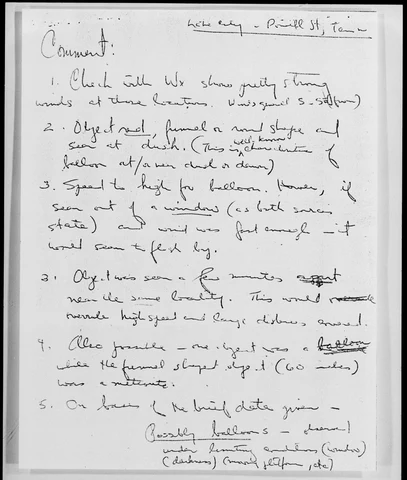 Lake City - Powell St, Tenn
Comment:
1. Check with Wx shows pretty strong
winds at these locations. Winds general S-SW
2. Object red, funnel or round shape and
seen at dusk. (This is well known characteristic of
balloon at/or near dusk or dawn)
3. Speed to high for balloon. However, if
seen out of a window (as both sources
state) and wind was fast enough - it
would seem to flash by.
3. Object was seen a few minutes apart
near the same locality. This would
override high speed and large distances covered.
4. Also possible - one object was a balloon
while the funnel shaped object (60 miles)
was a meteorite.
5. On basis of the brief data given -
Possibly balloons -
under limiting conditions (window)
(darkness) (moving platform, etc)